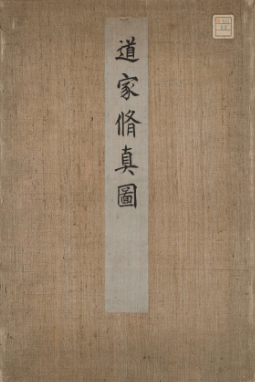 道家脩真圖